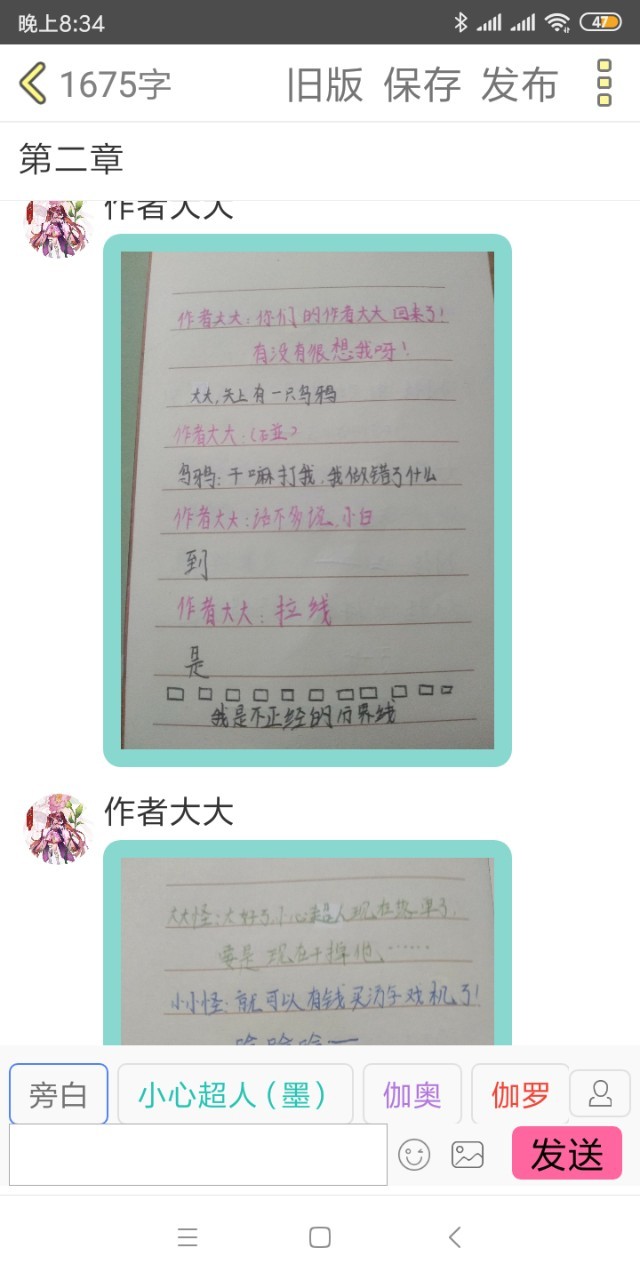 晚上8:34
47
1675字 旧版 保存 发布
第二章
作者大大
作者大大:你们的作者大大回来了!
有没有很想我呀!
大大,天上有一只乌鸦
作者大大:(石
乌鸦:干嘛打我,我做错了什么
作者大大:话不多说,小白
到
作者大大:拉线
是
我是不正经的 界线
作者大大
大大怪:太好了,小心超人现在 单了,
要是现在干掉他、……
小小怪:就可以有钱买 游戏机了!
哈哈哈一
旁白 小心超人(墨) 伽奥 伽罗
发送